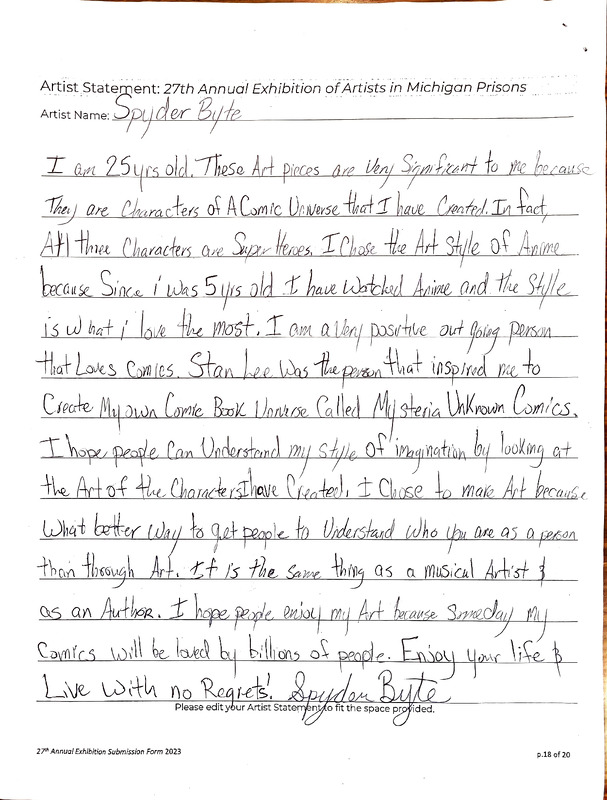 Artist Statement: 27th Annual Exhibition of Artists in Michigan Prisons
Artist Name: Spyder Byte
I am 25yrs old. These Art pieces are Very Significant to me because
They are Characters of A Comic Universe that I have Created. In fact,
All three Characters are Super Heroes. I Chose the Art Style of Anime
because Since i was 5yrs old I have Watched Anime and the Style
is what i love the most. I am a Very positive out going person
that Loves Comics. Stan Lee Was the person that inspired me to
Create My own Comic Book Universe Called Mysteria UnKnown Comics.
I hope people Can Understand my Style of imagination by looking at
the Art of the Characters I have Created. I Chose to make Art because
What better Way to get people to Understand Who you are as a person
than through Art. It is the same thing as a musical Artist &
as an Author. I hope people enjoy my Art because Someday my
Comics will be loved by billions of people. Enjoy your life &
Live With no Regrets! Spyder Byte
Please edit your Artist Statement to fit the space provided.
27th Annual Exhibition Submission Form 2023
p.18 of 20